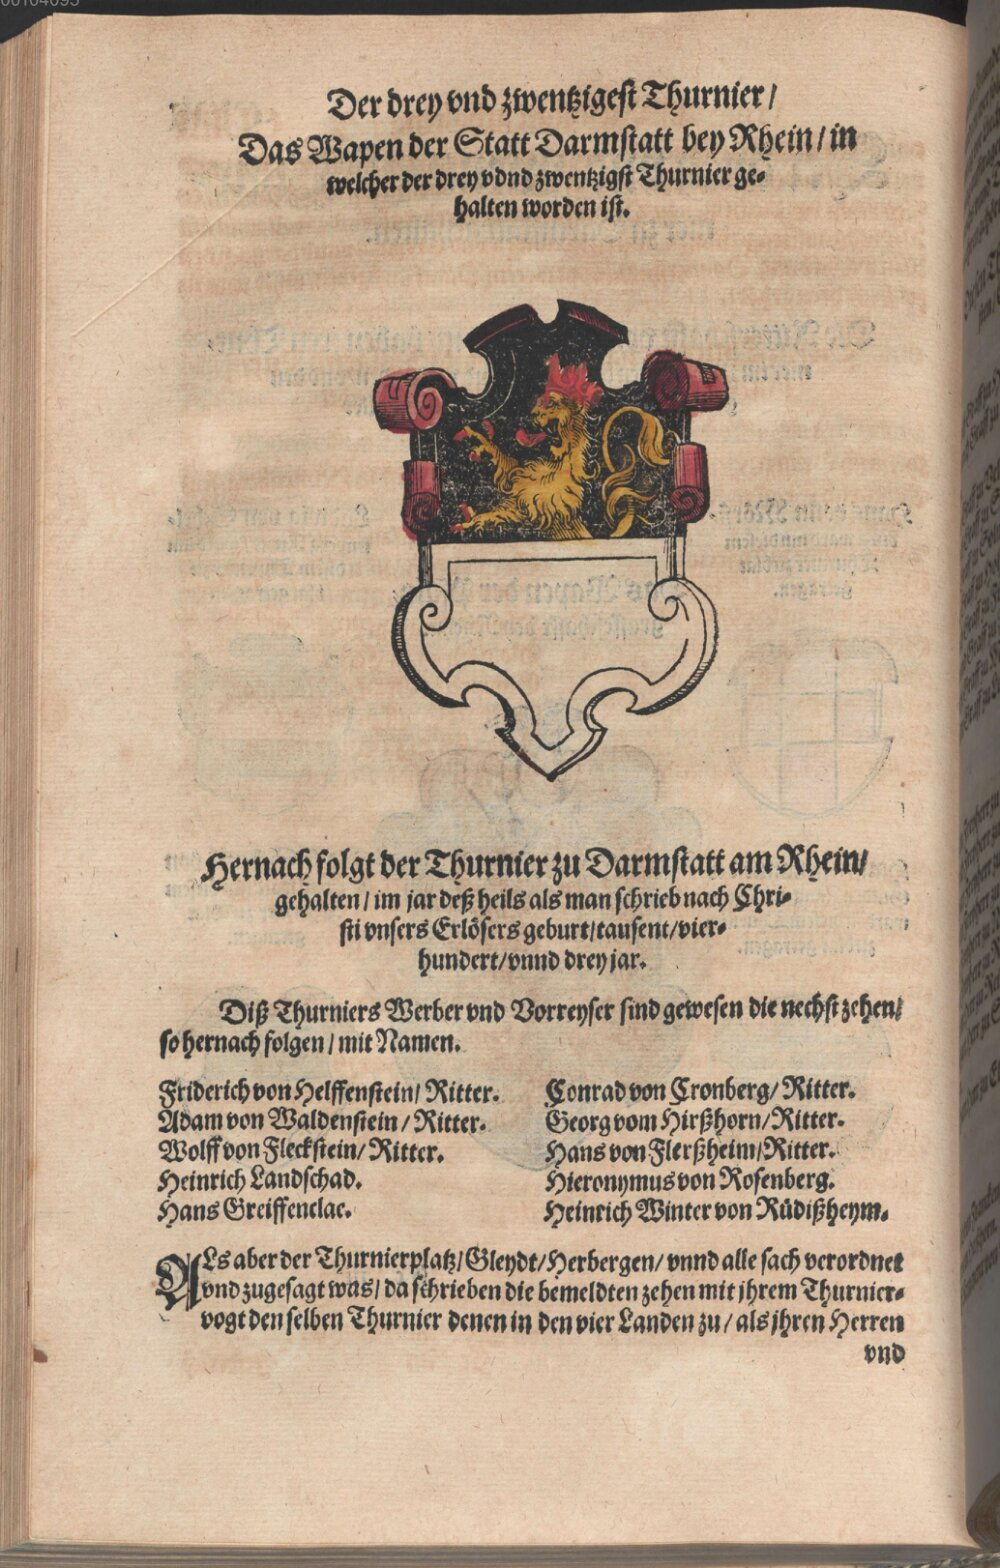 Der drey vnd zwentzigest Thurnier/
Das Wapen der Statt Darmstatt bey Rhein/ in
welcher der drey vdnd zwentzigst Thurnier ge-
halten worden ist.
Hernach folgt der Thurnier zu Darmstatt am Rhein/
gehalten/ im jar deß heils als man schrieb nach Chri-
sti vnsers Erlösers geburt/ tausent/ vier-
hundert/ vnnd drey jar.
Diß Thurniers Werber vnd Vorreyser sind gewesen die nechst zehen/
so hernach folgen/ mit Namen.
Friderich von Helffenstein/ Ritter.
Adam von Waldenstein/ Ritter.
Wolff von Fleckstein/ Ritter.
Heinrich Landschad.
Hans Greiffenclae.
Conrad von Cronberg/ Ritter.
Georg vom Hirßhorn/ Ritter.
Hans von Flerßheim/ Ritter.
Hieronymus von Rosenberg.
Heinrich Winter von Rüdißheym.
ALs aber der Thurnierplatz/ Gleydt/ Herbergen/ vnnd alle sach verordnet
vnd zugesagt was/ da schrieben die bemeldten zehen mit jhrem Thurnier-
vogt den selben Thurnier denen in den vier Landen zu/ als jhren Herren
vnd